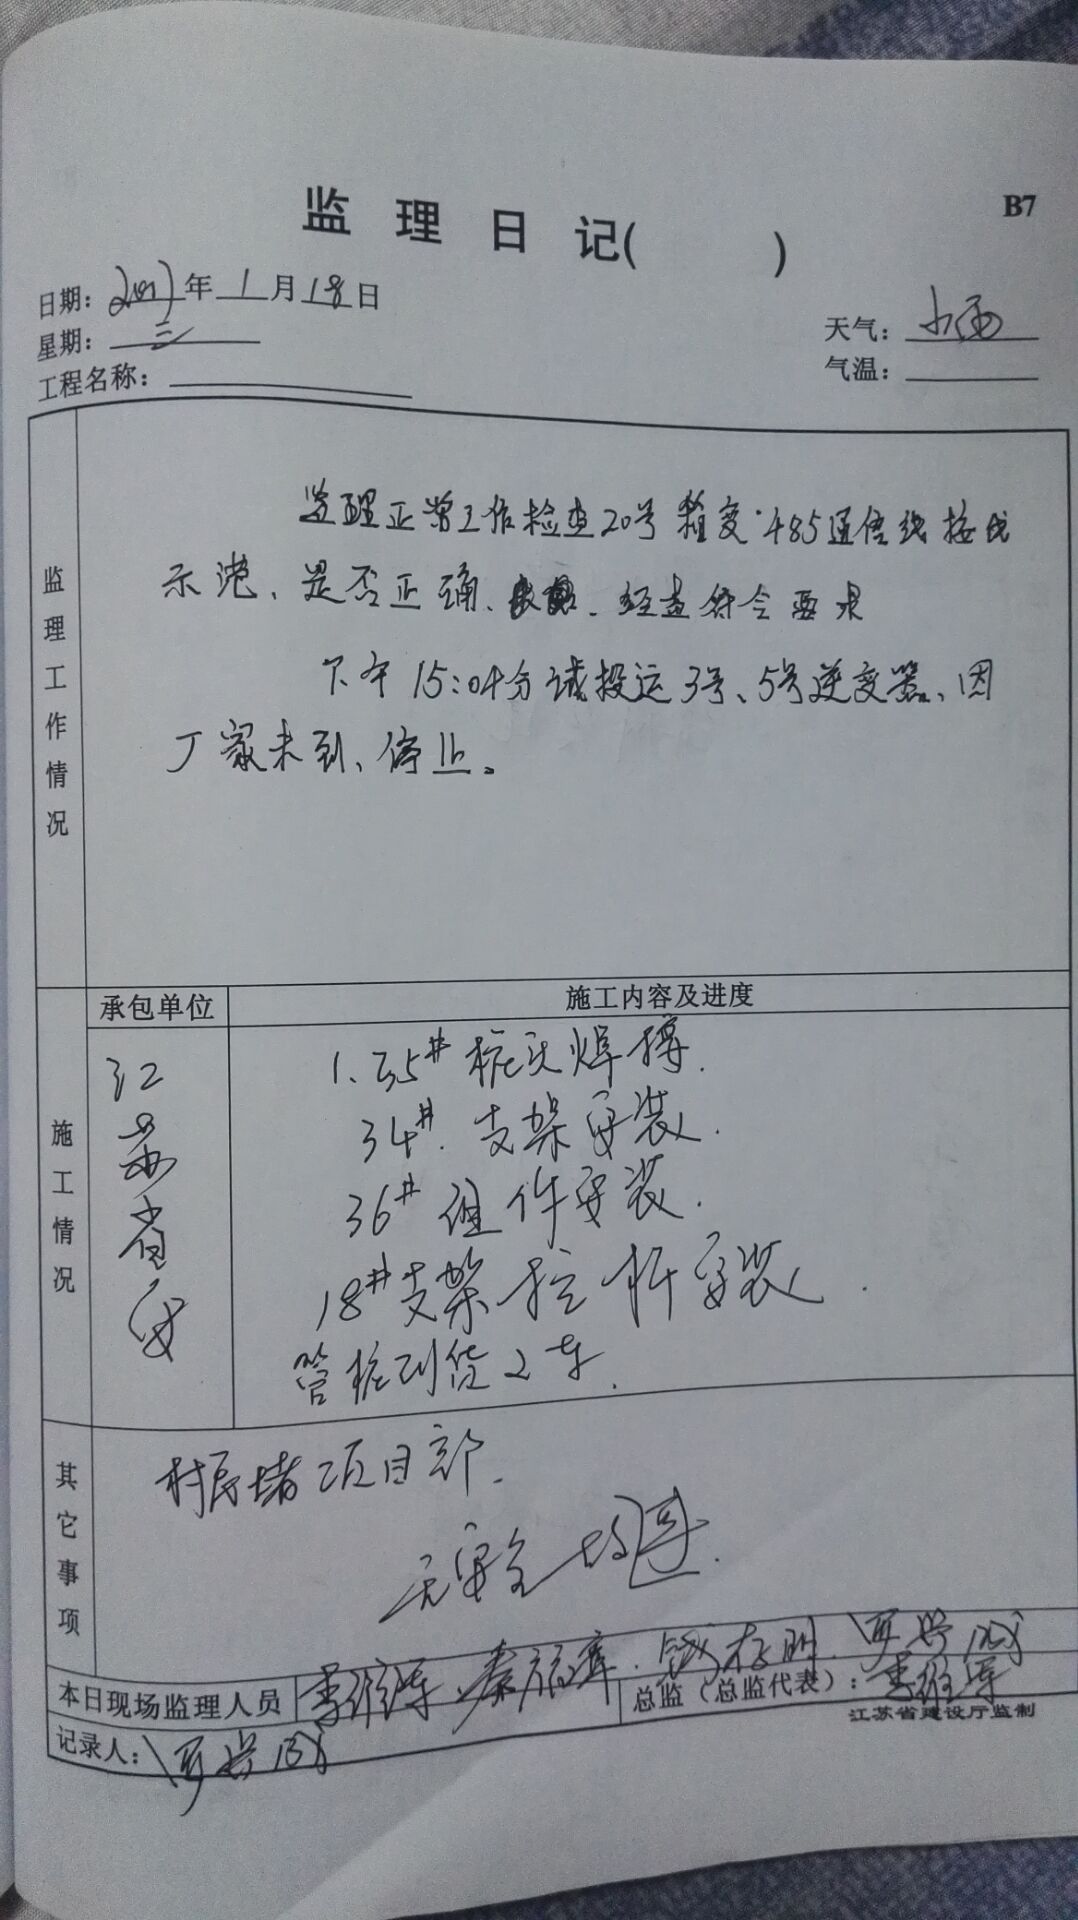 B7
监理日记( )
日期: 2017年1月18日
星期: 三
天气: 小雨
工程名称:
气温:
监理工作情况
监理正常工作检查20号箱变·485通信线接线
示范、是否正确、经查符合要求
下午15:04分试投运3号、5号逆变器、因
厂家未到、停止。
施工情况
承包单位
施工内容及进度
江苏省安
1. 35# 桩头焊接.
34#. 支架安装.
36# 组件安装.
18#支架拉杆安装.
管桩到货2车.
其它事项
村民堵项目部.
无安全
本日现场监理人员
李维
总监（总监代表）: 李维
江苏省建设厅监制
记录人: